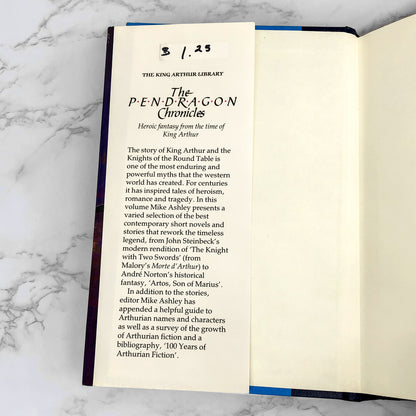 $ 1.25
THE KING ARTHUR LIBRARY
The
P·E·N·D·R·A·G·O·N
Chronicles
Heroic fantasy from the time of
King Arthur
The story of King Arthur and the
Knights of the Round Table is
one of the most enduring and
powerful myths that the western
world has created. For centuries
it has inspired tales of heroism,
romance and tragedy. In this
volume Mike Ashley presents a
varied selection of the best
contemporary short novels and
stories that rework the timeless
legend, from John Steinbeck's
modern rendition of 'The Knight
with Two Swords' (from
Malory's Morte d'Arthur) to
André Norton's historical
fantasy, 'Artos, Son of Marius'.
In addition to the stories,
editor Mike Ashley has
appended a helpful guide to
Arthurian names and characters
as well as a survey of the growth
of Arthurian fiction and a
bibliography, '100 Years of
Arthurian Fiction'.